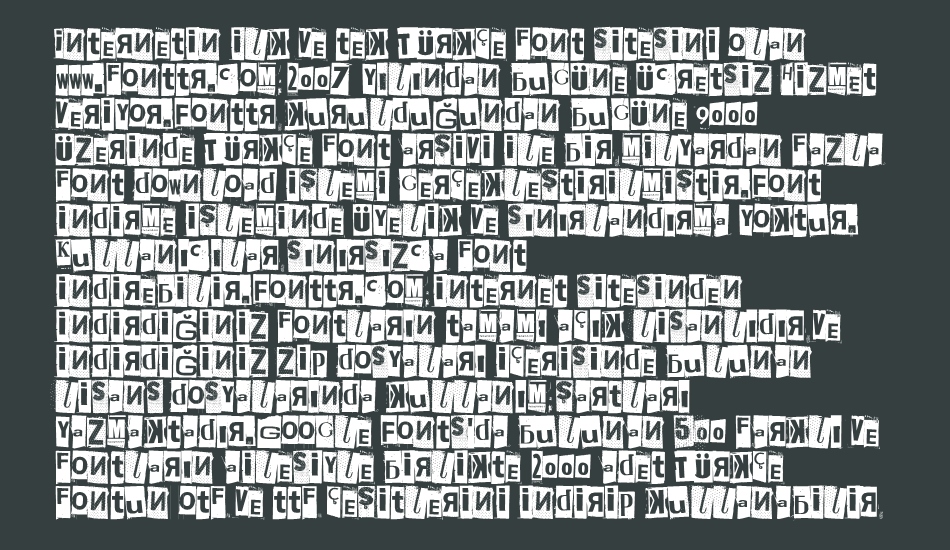 internetin ilk ve tek Türkçe font sitesini olan
www.fonttr.com 2007 yılından bugüne ücretsiz hizmet
veriyor.fonttr kurulduğundan bugüne 9000
üzerinde Türkçe font arşivi ile bir milyardan fazla
font download işlemi gerçekleştirilmiştir.font
indirme işleminde üyelik ve sınırlandırma yoktur.
Kullanıcılar sınırsızca font
indirebilir.fonttr.com internet sitesinden
indirdiğiniz fontların tamamı açık lisanlıdır ve
indirdiğiniz zip dosyaları içerisinde bulunan
lisans dosyalarında kullanım şartları
yazmaktadır.google fonts'da bulunan 500 farklı ve
fontların ailesiyle birlikte 2000 adet Türkçe
fontun otf ve ttf çeşitlerini indirip kullanabilir